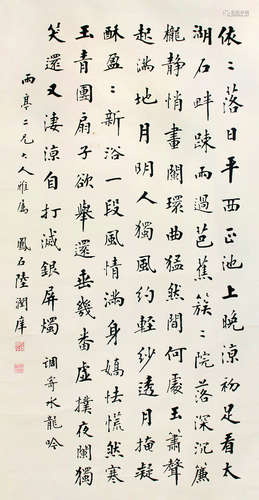 依〻落日平西正池上晚涼初足看太
湖石畔踈雨過芭蕉簇〻院落深沉簾
櫳靜悄畫闌環曲猛然間何處玉簫聲
起滿地月明人獨風約輕紗透月掩凝
酥盈〻新浴一段風情滿身嬌怯慌然寒
玉青團扇子欲舉還垂幾番虛撲夜闌獨
笑還又淒涼自打滅銀屏燭 調寄水龍吟
雨亭二兄大人雅屬 鳳石陸潤庠